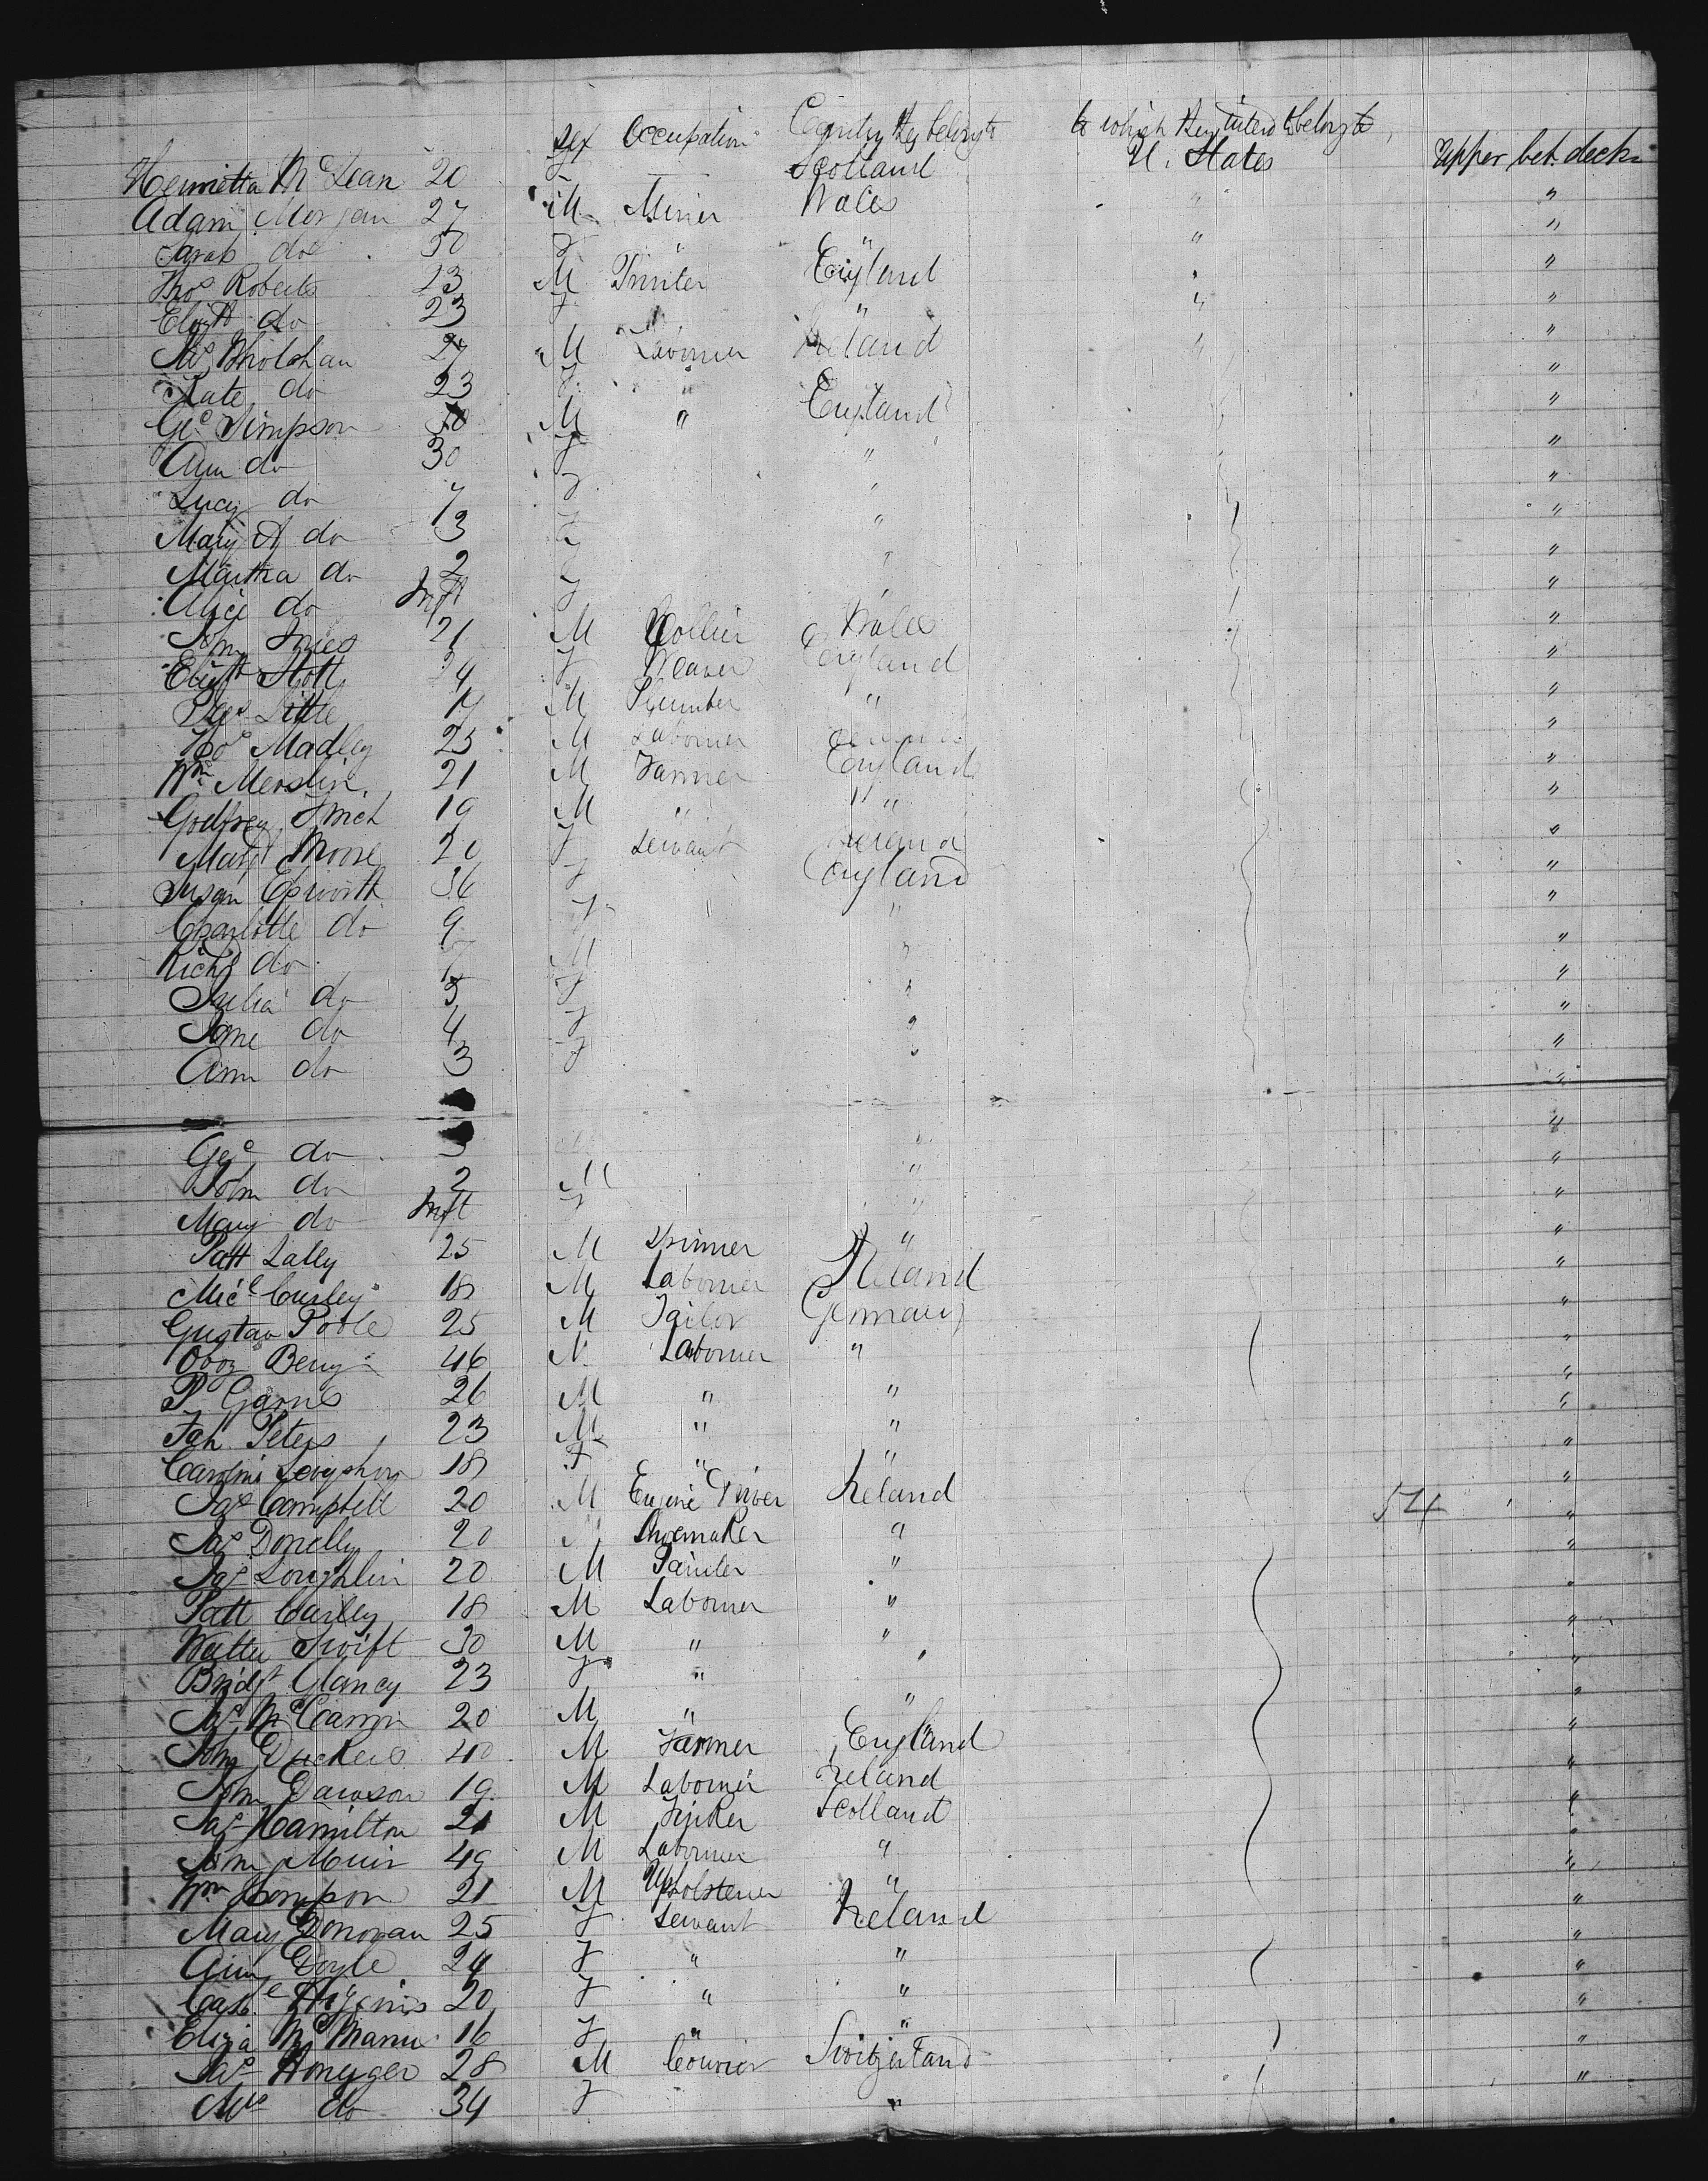 Sex Occupation Country they belong to to which they intend to belong to,
Henrietta McLean 20 F — Scotland U. States Upper bet. decks
Adam Morgan 27 M Miner Wales " "
Sarah do 30 F " " " "
Thos Roberts 23 M Printer England " "
Elizth do 23 F " " "
Jas 27 M Laborer Ireland " "
Kate do 23 F " "
Geo Simpson M " England "
Ann do 30 F " "
Lucy do 7 F " "
Mary A do 3 F " "
Martha do 2 " "
Alice do Inft F " "
John 21 M Collier Wales "
Elizth Stott 24 F Weaver England "
Jas Little 17 M Plumber " "
Thos Madley 25 M Laborer "
Wm 21 M Farmer England "
Godfrey 19 M " " "
Margt Moore 20 F Servant Ireland "
Susan Epworth 36 F England "
Charlotte do 9 F " "
Richd do 7 M " "
Julia do 5 F " "
Jane do 4 F " "
Ann do 3 F " "
Geo do 3 " "
John do 2 M " "
Mary do Inft F " "
Patt Lally 25 M Spinner " "
Micl Curley 18 M Laborer Ireland "
Gustav Poble 25 M Tailor Germany "
Berry 46 M Laborer " "
P Garns 26 M " " "
Joh Peters 23 M " " "
Caroline 18 F " " "
Jas Campbell 20 M Engine Driver Ireland 574 "
Jas Donelly 20 M Shoemaker " "
Jas Loughlin 20 M Painter " "
Patt Curley 18 M Laborer " "
Walter Swift 30 M " " "
Bridgt Glancy 23 F " " "
Jas McCann 20 M " " "
John Duckers 40 M Farmer England "
John Dawson 19 M Laborer Ireland "
Jas Hamilton 21 M Scotland "
John Muir 49 M Laborer " "
Wm Thompson 21 M Upholsterer " "
Mary Donovan 25 F Servant Ireland "
Ann Doyle 24 F " " "
Cathe Higgins 20 F " " "
Eliza McMann 16 F " " "
Jas Honegger 28 M Courier Switzerland "
Mrs do 34 F "